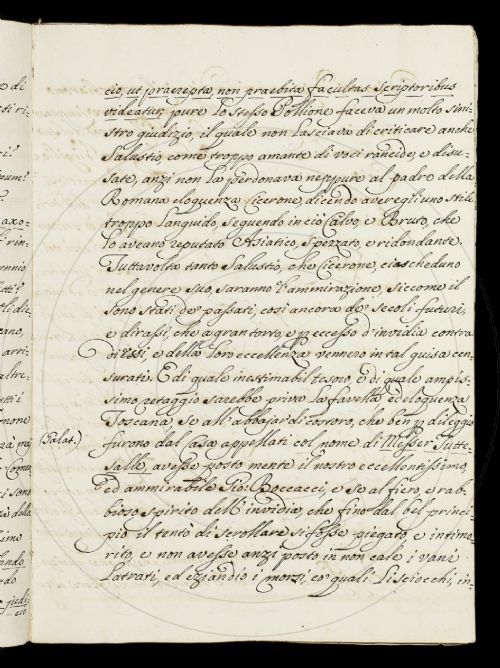 cio, ut praerepta, non praebita facultas Scriptoribus
videatur; pure lo stesso Pollione faceva un molto sini-
stro giudizio, il quale non lasciava di criticare anche
Salustio come troppo amante di voci rancide, e disu-
sate, anzi non la perdonava neppure al padre della
Romana eloquenza Cicerone, dicendo aver egli uno stile
troppo languido, seguendo in ciò Calvo, e Bruto, che
lo aveano reputato Asiatico, spezzato, e ridondante.
Tuttavolta tanto Salustio, che Cicerone, ciascheduno
nel genere suo, saranno l'ammirazione, siccome il
sono stati de' passati, così ancora de' secoli futuri,
e dirassi, che a gran torto, e p eccesso d'invidia contra
di Essi, e della loro eccellenza vennero in tal guisa cen-
surati. E di quale inestimabil tesoro, e di quale ampis-
simo retaggio sarebbe priva la favella, ed eloquenza
Toscana, se all'abbajar di costoro, che ben p dileggio
(Galat.) furono dal Casa appellati col nome di Messer Tutte-
salle, avesse posto mente il nostro eccellentissimo,
ed ammirabile Gio: Boccacci, e se al fiero, e rab-
bioso spirito dell'invidia, che fino dal bel princi-
pio il tentò di scrollare si fosse piegato, e intimo-
rito, e non avesse anzi posto in non cale i vani
latrati, ed eziandio i morsi, co' quali li sciocchi, in-